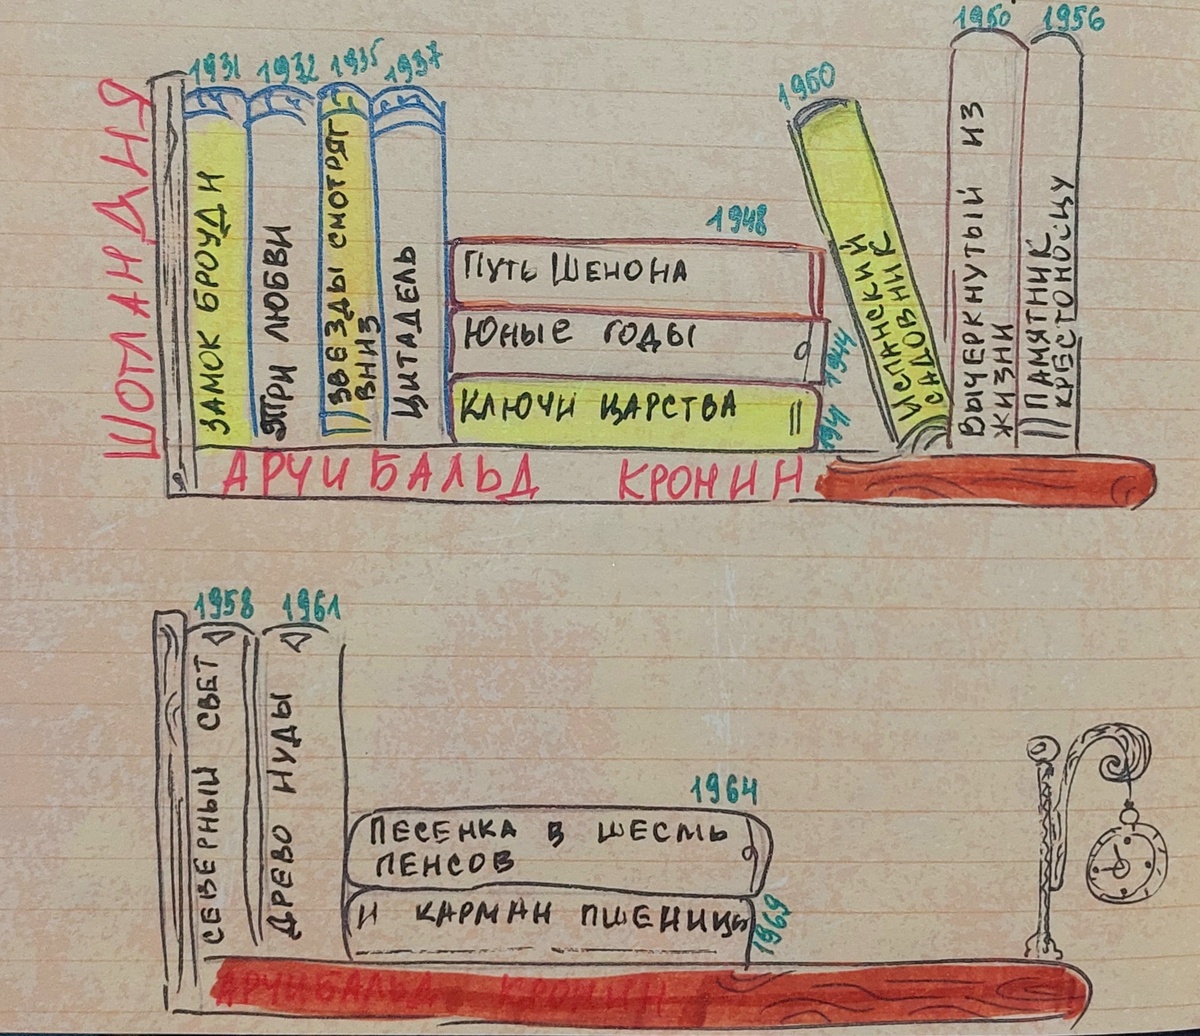 ШОТЛАНДИЯ
1931
ЗАМОК БРОУДИ
1932
ТРИ ЛЮБВИ
1935
ЗВЕЗДЫ СМОТРЯТ
ВНИЗ
1937
ЦИТАДЕЛЬ
1948
ПУТЬ ШЕНОНА
ЮНЫЕ ГОДЫ
1944
КЛЮЧИ ЦАРСТВА
1941
1950
ИСПАНСКИЙ
САДОВНИК
1950
ВЫЧЕРКНУТЫЙ ИЗ
ЖИЗНИ
1956
ПАМЯТНИК
КРЕСТОНОСЦУ
АРЧИБАЛЬД КРОНИН
1958
СЕВЕРНЫЙ СВЕТ
1961
ДРЕВО ИУДЫ
1964
ПЕСЕНКА В ШЕСТЬ
ПЕНСОВ
И КАРМАН ПШЕНИЦЫ
1969
АРЧИБАЛЬД КРОНИН